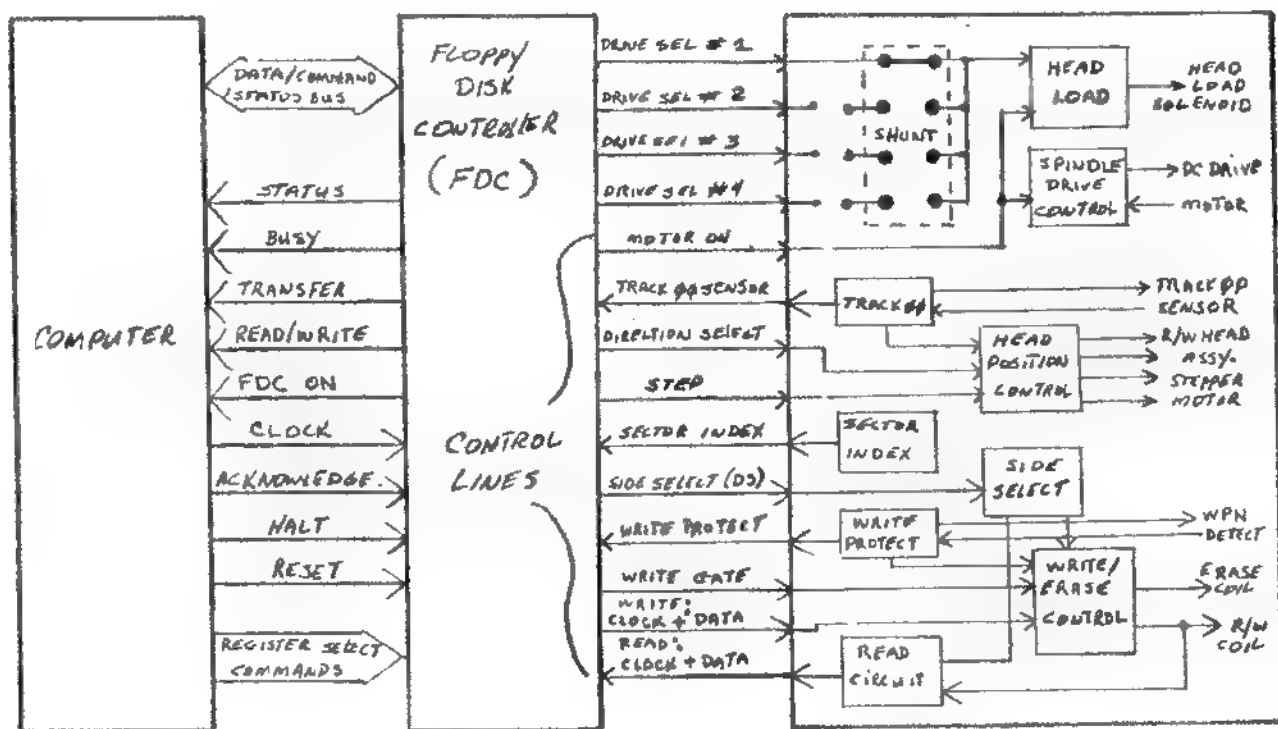 COMPUTER
DATA/COMMAND
/STATUS BUS
STATUS
BUSY
TRANSFER
READ/WRITE
FDC ON
CLOCK
ACKNOWLEDGE.
HALT
RESET
REGISTER SELECT
COMMANDS
FLOPPY
DISK
CONTROLLER
(FDC)
CONTROL
LINES
DRIVE SEL # 1
DRIVE SEL # 2
DRIVE SEL # 3
DRIVE SEL #4
MOTOR ON
TRACK ØØ SENSOR
DIRECTION SELECT
STEP
SECTOR INDEX
SIDE SELECT (DS)
WRITE PROTECT
WRITE GATE
WRITE:
CLOCK + DATA
READ:
CLOCK + DATA
SHUNT
HEAD
LOAD
HEAD
LOAD
SOLENOID
SPINDLE
DRIVE
CONTROL
DC DRIVE
MOTOR
TRACK ØØ
TRACK ØØ
SENSOR
HEAD
POSITION
CONTROL
R/W HEAD
ASSY.
STEPPER
MOTOR
SECTOR
INDEX
SIDE
SELECT
WRITE
PROTECT
WPN
DETECT
WRITE/
ERASE
CONTROL
ERASE
COIL
R/W
COIL
READ
CIRCUIT